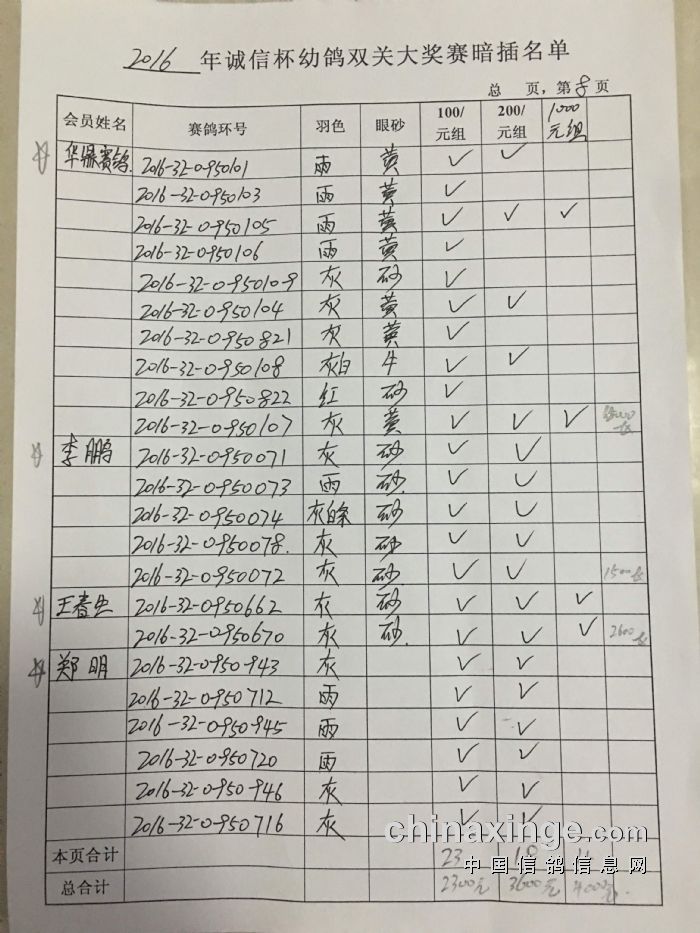 2016 年诚信杯幼鸽双关大奖赛暗插名单
总 页，第8页
会员姓名 赛鸽环号 羽色 眼砂 100/元组 200/元组 1000元组
华鼎赛鸽 2016-32-0950101 雨 黄 ✓ ✓
2016-32-0950103 雨 黄 ✓
2016-32-0950105 雨 黄 ✓ ✓ ✓
2016-32-0950106 雨 黄 ✓
2016-32-0950109 灰 砂 ✓
2016-32-0950104 灰 黄 ✓ ✓
2016-32-0950821 灰 黄 ✓
2016-32-0950108 灰白 牛 ✓ ✓
2016-32-0950822 红 砂 ✓
2016-32-0950107 灰 黄 ✓ ✓ ✓
李鹏 2016-32-0950071 灰 砂 ✓ ✓
2016-32-0950073 雨 砂 ✓ ✓
2016-32-0950074 灰白条 砂 ✓ ✓
2016-32-0950078 灰 砂 ✓ ✓
2016-32-0950072 灰 砂 ✓ ✓ 1500
王春生 2016-32-0950662 灰 砂 ✓ ✓ ✓
2016-32-0950670 灰 砂 ✓ ✓ ✓ 2600
郑明 2016-32-0950943 灰 ✓ ✓
2016-32-0950712 雨 ✓ ✓
2016-32-0950945 雨 ✓ ✓
2016-32-0950720 雨 ✓ ✓
2016-32-0950946 灰 ✓ ✓
2016-32-0950716 灰 ✓ ✓
chinaxinge.com
本页合计 23 18 4
中国信鸽信息网
总合计 2300元 3600元 4000元